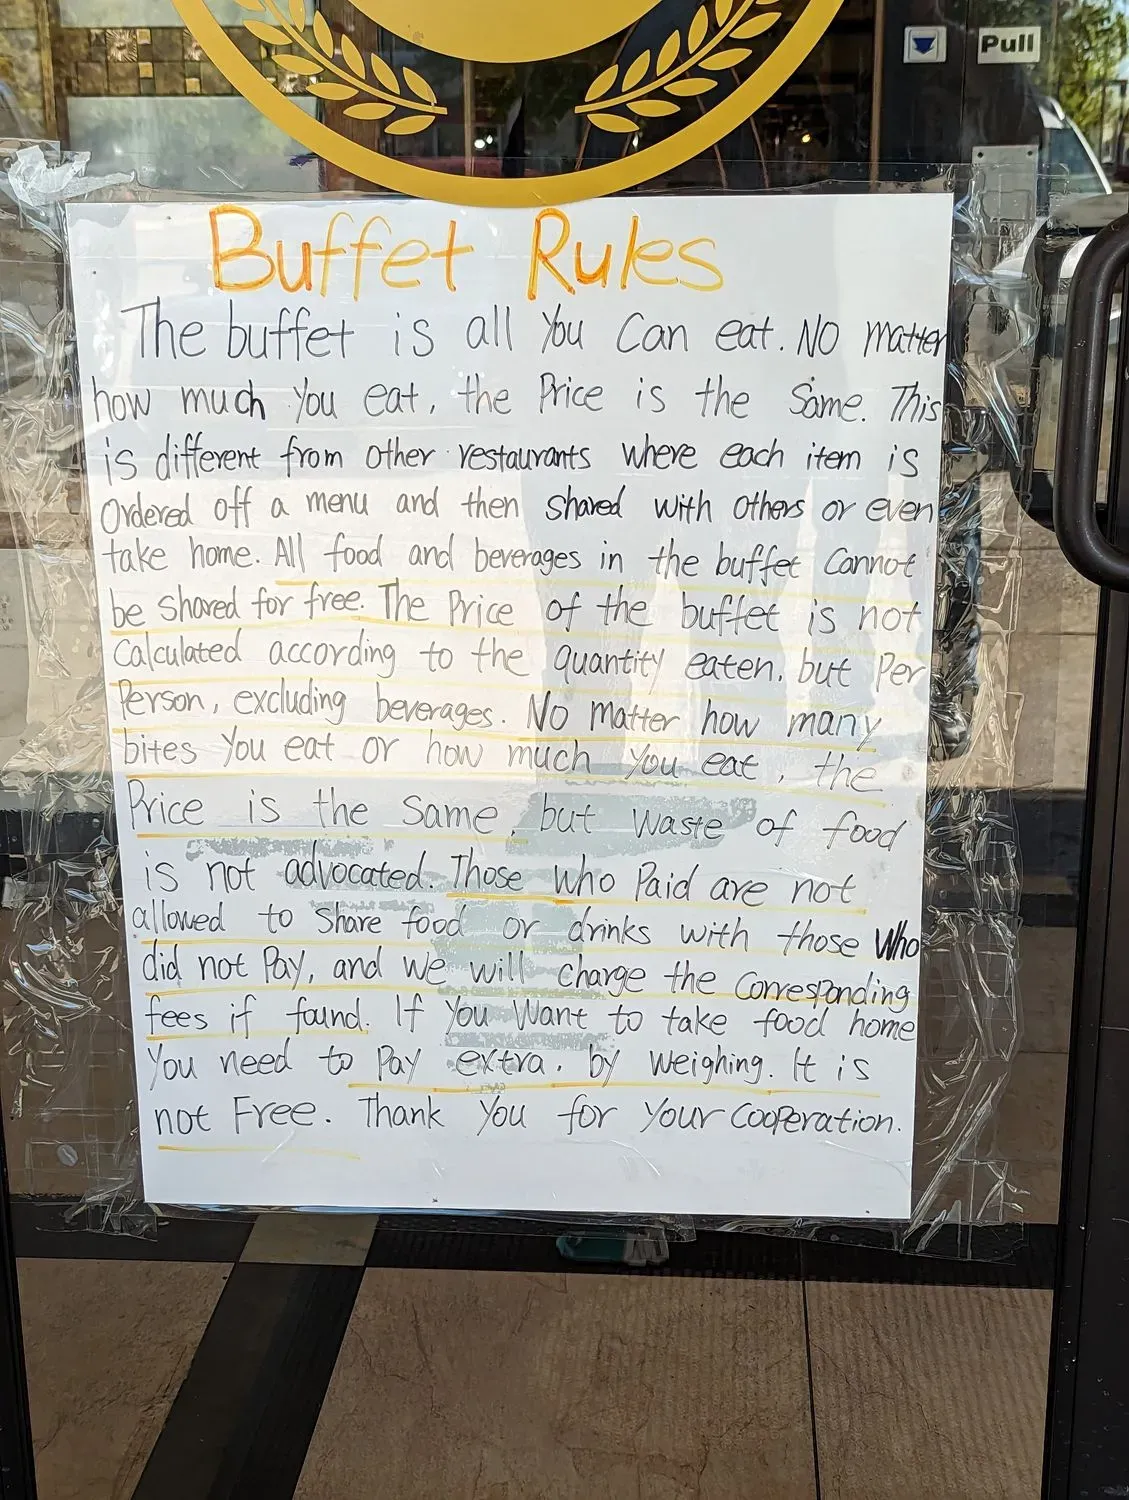 Pull
Buffet Rules
The buffet is all You Can eat. NO matter
how much You eat, the Price is the Same. This
is different from other restaurants where each item is
Ordered off a menu and then shared with others or even
take home. All food and beverages in the buffet Cannot
be shared for free. The Price of the buffet is not
Calculated according to the quantity eaten, but Per
Person, excluding beverages. No matter how many
bites You eat or how much You eat, the
Price is the Same, but waste of food
is not advocated. Those Who Paid are not
allowed to share food or drinks with those Who
did not Pay, and we will charge the Corresponding
fees if found. If You Want to take food home
You need to Pay extra. by weighing. It is
not Free. Thank You for Your Cooperation.